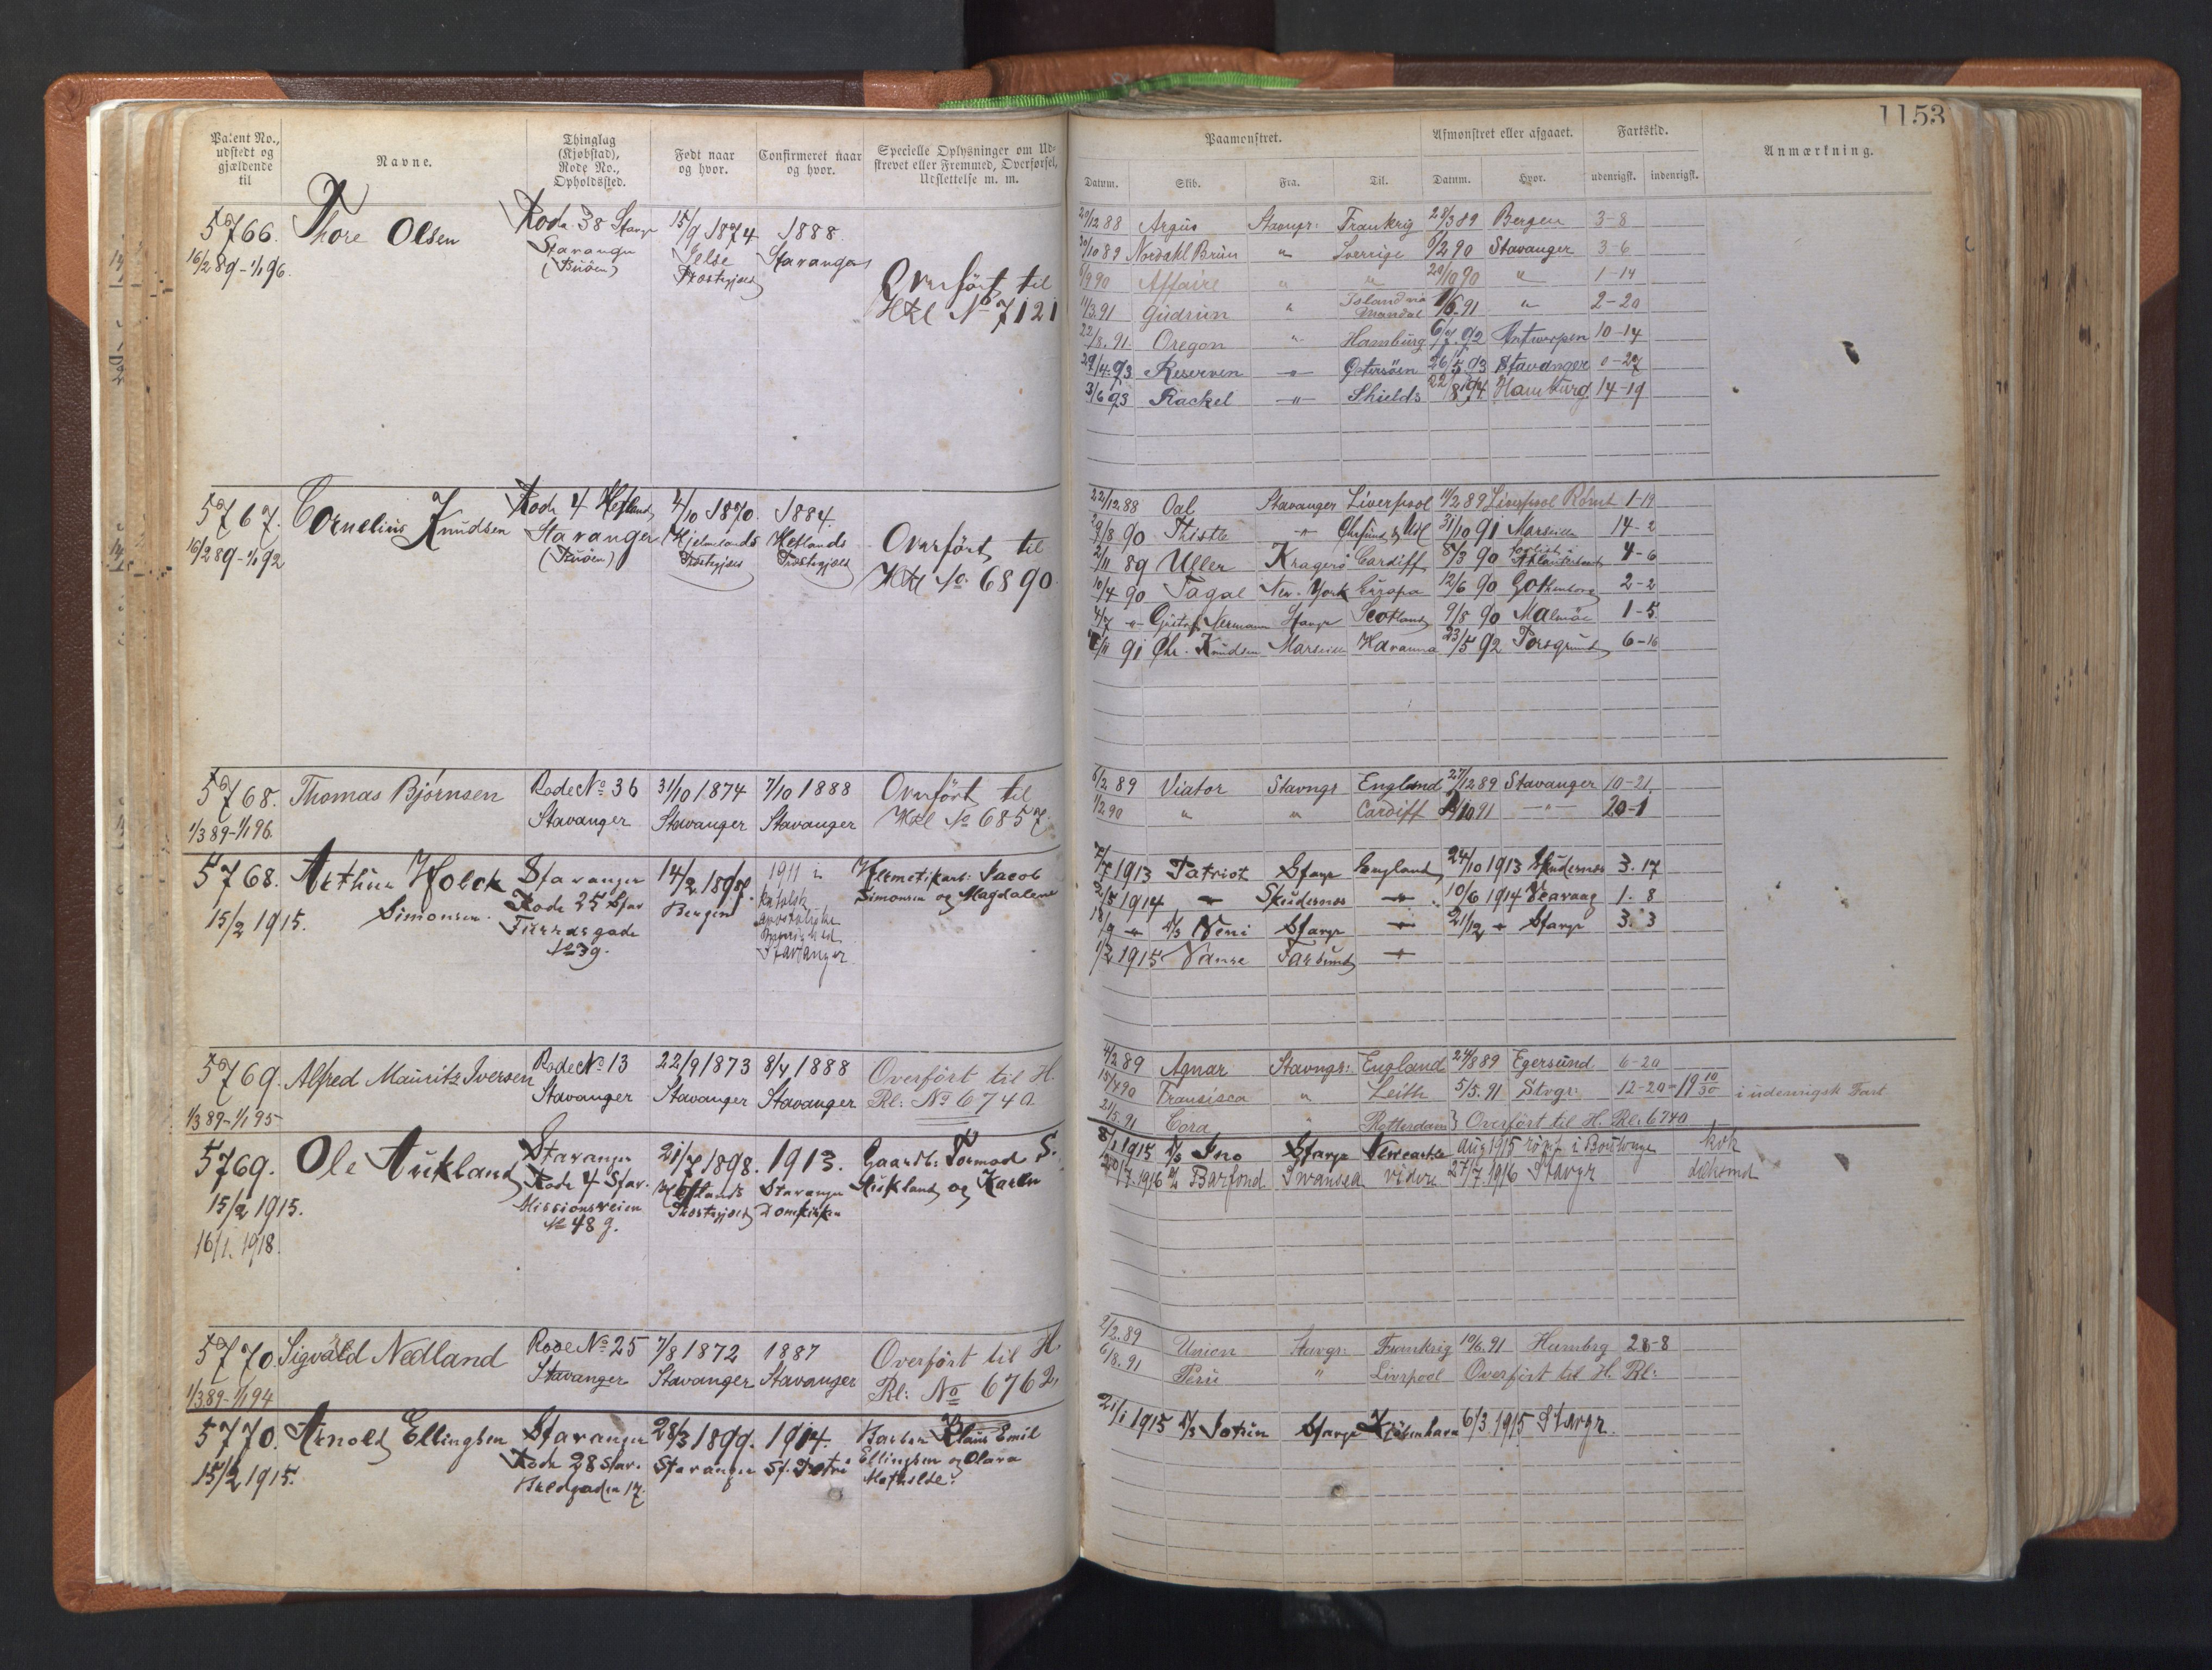 1153
Patent No., udstedt og gjældende til
Navne.
Thinglag (Kjøbstad), Rode No., Opholdssted.
Født naar og hvor.
Confirmeret naar og hvor.
Specielle Oplysninger om Udskrevet eller Fremmed, Overførsel, Udslettelse m. m.
Paamønstret.
Afmønstret eller afgaaet.
Fartstid.
Anmærkning.
Datum. Skib. Fra. Til. Datum. Hvor. udenrigsk. indenrigsk.
5766. Thore Olsen Rode 38 Stavgr 15/9 1874 1888
16/2 89 - 1/1 96. Stavanger Jelse Stavanger
(Buöen) Præstegjeld
Overført til
HRl No 7121
20/12 88 Argus Stavngr: Frankrig 28/3 89 Bergen 3-8
30/10 89 Nordahl Brun " Sverrige 6/2 90 Stavanger 3-6
6/9 90 Affaire " " 20/10 90 " 1-14
11/3.91 Gudrun " Island via Mandal 1/6.91 " 2-20
22/8.91 Oregon " Hamburg 6/7.92 Antwerpen 10-14
29/4.93 Reserven " Østersöen 26/5 93 Stavanger 0-27
3/6 93 Rackel " Shields 22/8 94 Hamburg 14-19
5767. Cornelius Knudsen Rode 4 Hetland 4/10 1870. 1884.
16/2 89 - 1/1 92 Stavanger Hjelmelands Hetlands
(Buöen) Præstegjeld Præstegjeld
Overført til
HRl No. 6890
22/12.88 Oal Stavanger Liverpool 11/2 89 Liverpool Rømt 1-19
29/8 90 Thistle " Chrsund & Mdl 31/10 91 Marseille 14-2
2/11 89 Uller Kragerö Cardiff 8/3 90 forlist i Atlanterhavet 4-6
10/4 90 Tagal New-York Europa 12/6 90 Gothenborg 2-2
4/7 " Gustaf Nermann Stavgr Scotland 9/8 90 Malmöe 1-5.
6/11 91 Chr. Knudsen Marseille Havanna 23/5 92 Porsgrund 6-16
5768. Thomas Bjørnsen Rode No 36 31/10 1874 7/10 1888
1/3 89 - 1/1 96. Stavanger Stavanger Stavanger
Overført til
HRl No 6857
6/2.89 Viator Stavngr England 27/12 89 Stavanger 10-21.
1/2.90 " " Cardiff 10.91 " 20-1
5768. Arthur Holck Stavanger 14/2 1897. 1911 i
Simonsen. Rode 25 Stav Bergen katolsk
15/2 1915. No 39. apostoliske
menighed
Stavanger
Jacob
Simonsen og Magdalene
7/7 1913 Patriot Stavgr England 24/10 1913 Skudesnes 3.17
2/5 1914 " Skudesnes " 10/6 1914 Veavaag 1.8
18/9 " D/S Veni Stavgr " 21/12 " Stavgr 3.3
1/2 1915 Vanse Farsund "
5769. Alfred Mauritz Iversen Rode No 13 22/9 1873 8/4 1888
1/3 89 - 1/1 95 Stavanger Stavanger Stavanger
Overført til H.
Rl: No 6740.
4/2 89 Agnar Stavngr: England 24/8 89 Egersund 6-20
15/4 90 Francisca " Leith 5/5.91 Stvgr: 12-20 = 19 10/30 i udenrigsk Fart
21/5.91 Cora " Rotterdam} Overført til H. Rl. 6740
5769. Ole Aukland Stavanger 21/7 1898. 1913.
15/2 1915. Rode 4 Stav. Hetlands Stavanger
Missionsveien Præstegjeld Domkirke
No 48 g.
16/1. 1918.
Gaardbr. Tormod S.
Aukland og Karen
8/1 1915 D/S Ino Stavgr Newcastle aug 1915 rømt i Boulougne kok
20/7.1916 Barfond Swansea videre 27/7.1916 Stavgr dæksmd
5770. Sigvald Nedland Rode No 25 7/8 1872 1887
1/3 89 - 1/1 94 Stavanger Stavanger Stavanger
Overført til H.
Rl: No 6762,
2/2.89 Union Stavgr: Frankrig 10/6.91 Hambrg 28-8
6/8.91 Peru " Livrpool Overført til H. Rl:
5770. Arnold Ellingsen Stavanger 28/3 1899. 1914.
15/2 1915. Rode 28 Stav. Stavanger St. Petri
17.
Barber Klaus Emil
Ellingsen og Olava
Mathilde.
21/1 1915 D/S Jotun Stavgr Kjöbenhavn 6/3.1915 Stavgr.